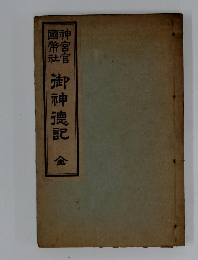 神宮官
國幣社
御神德記 全